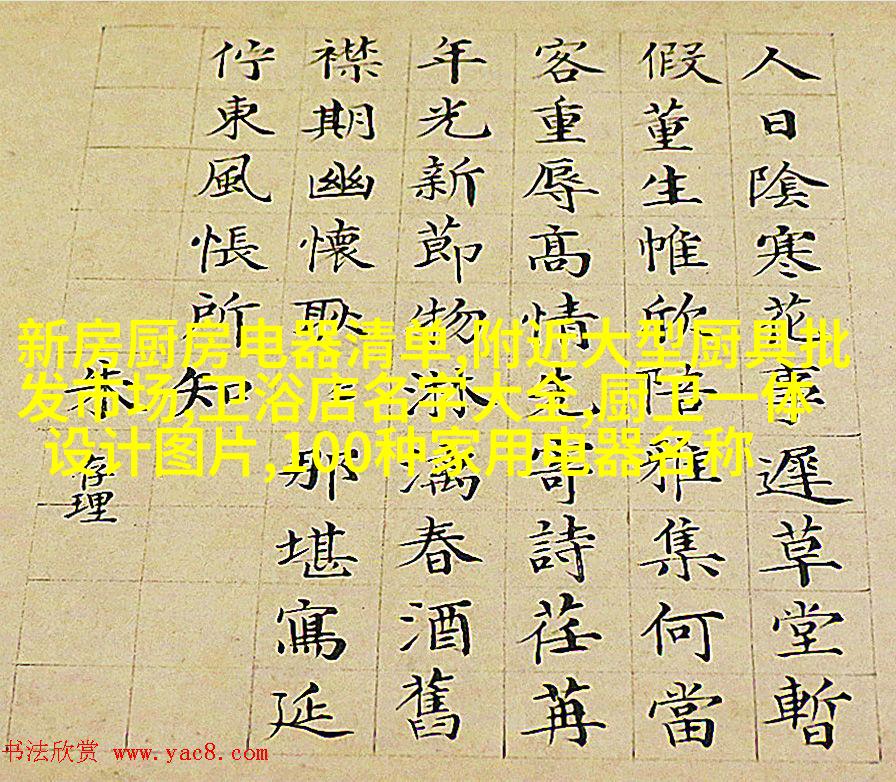 人日陰寒花事遲草堂暫
假董生帷欣陪雅集何當
客重辱高情寄詩荏苒
年光新節物淋漓春酒舊
襟期幽懷耿那堪寫延
佇東風悵所知
朱存理
新房厨房电器清单,附近大型厨具批
发市场,卫浴店名字大全,厨卫一体
设计图片,100种家用电器名称
书法欣赏 www.yac8.com